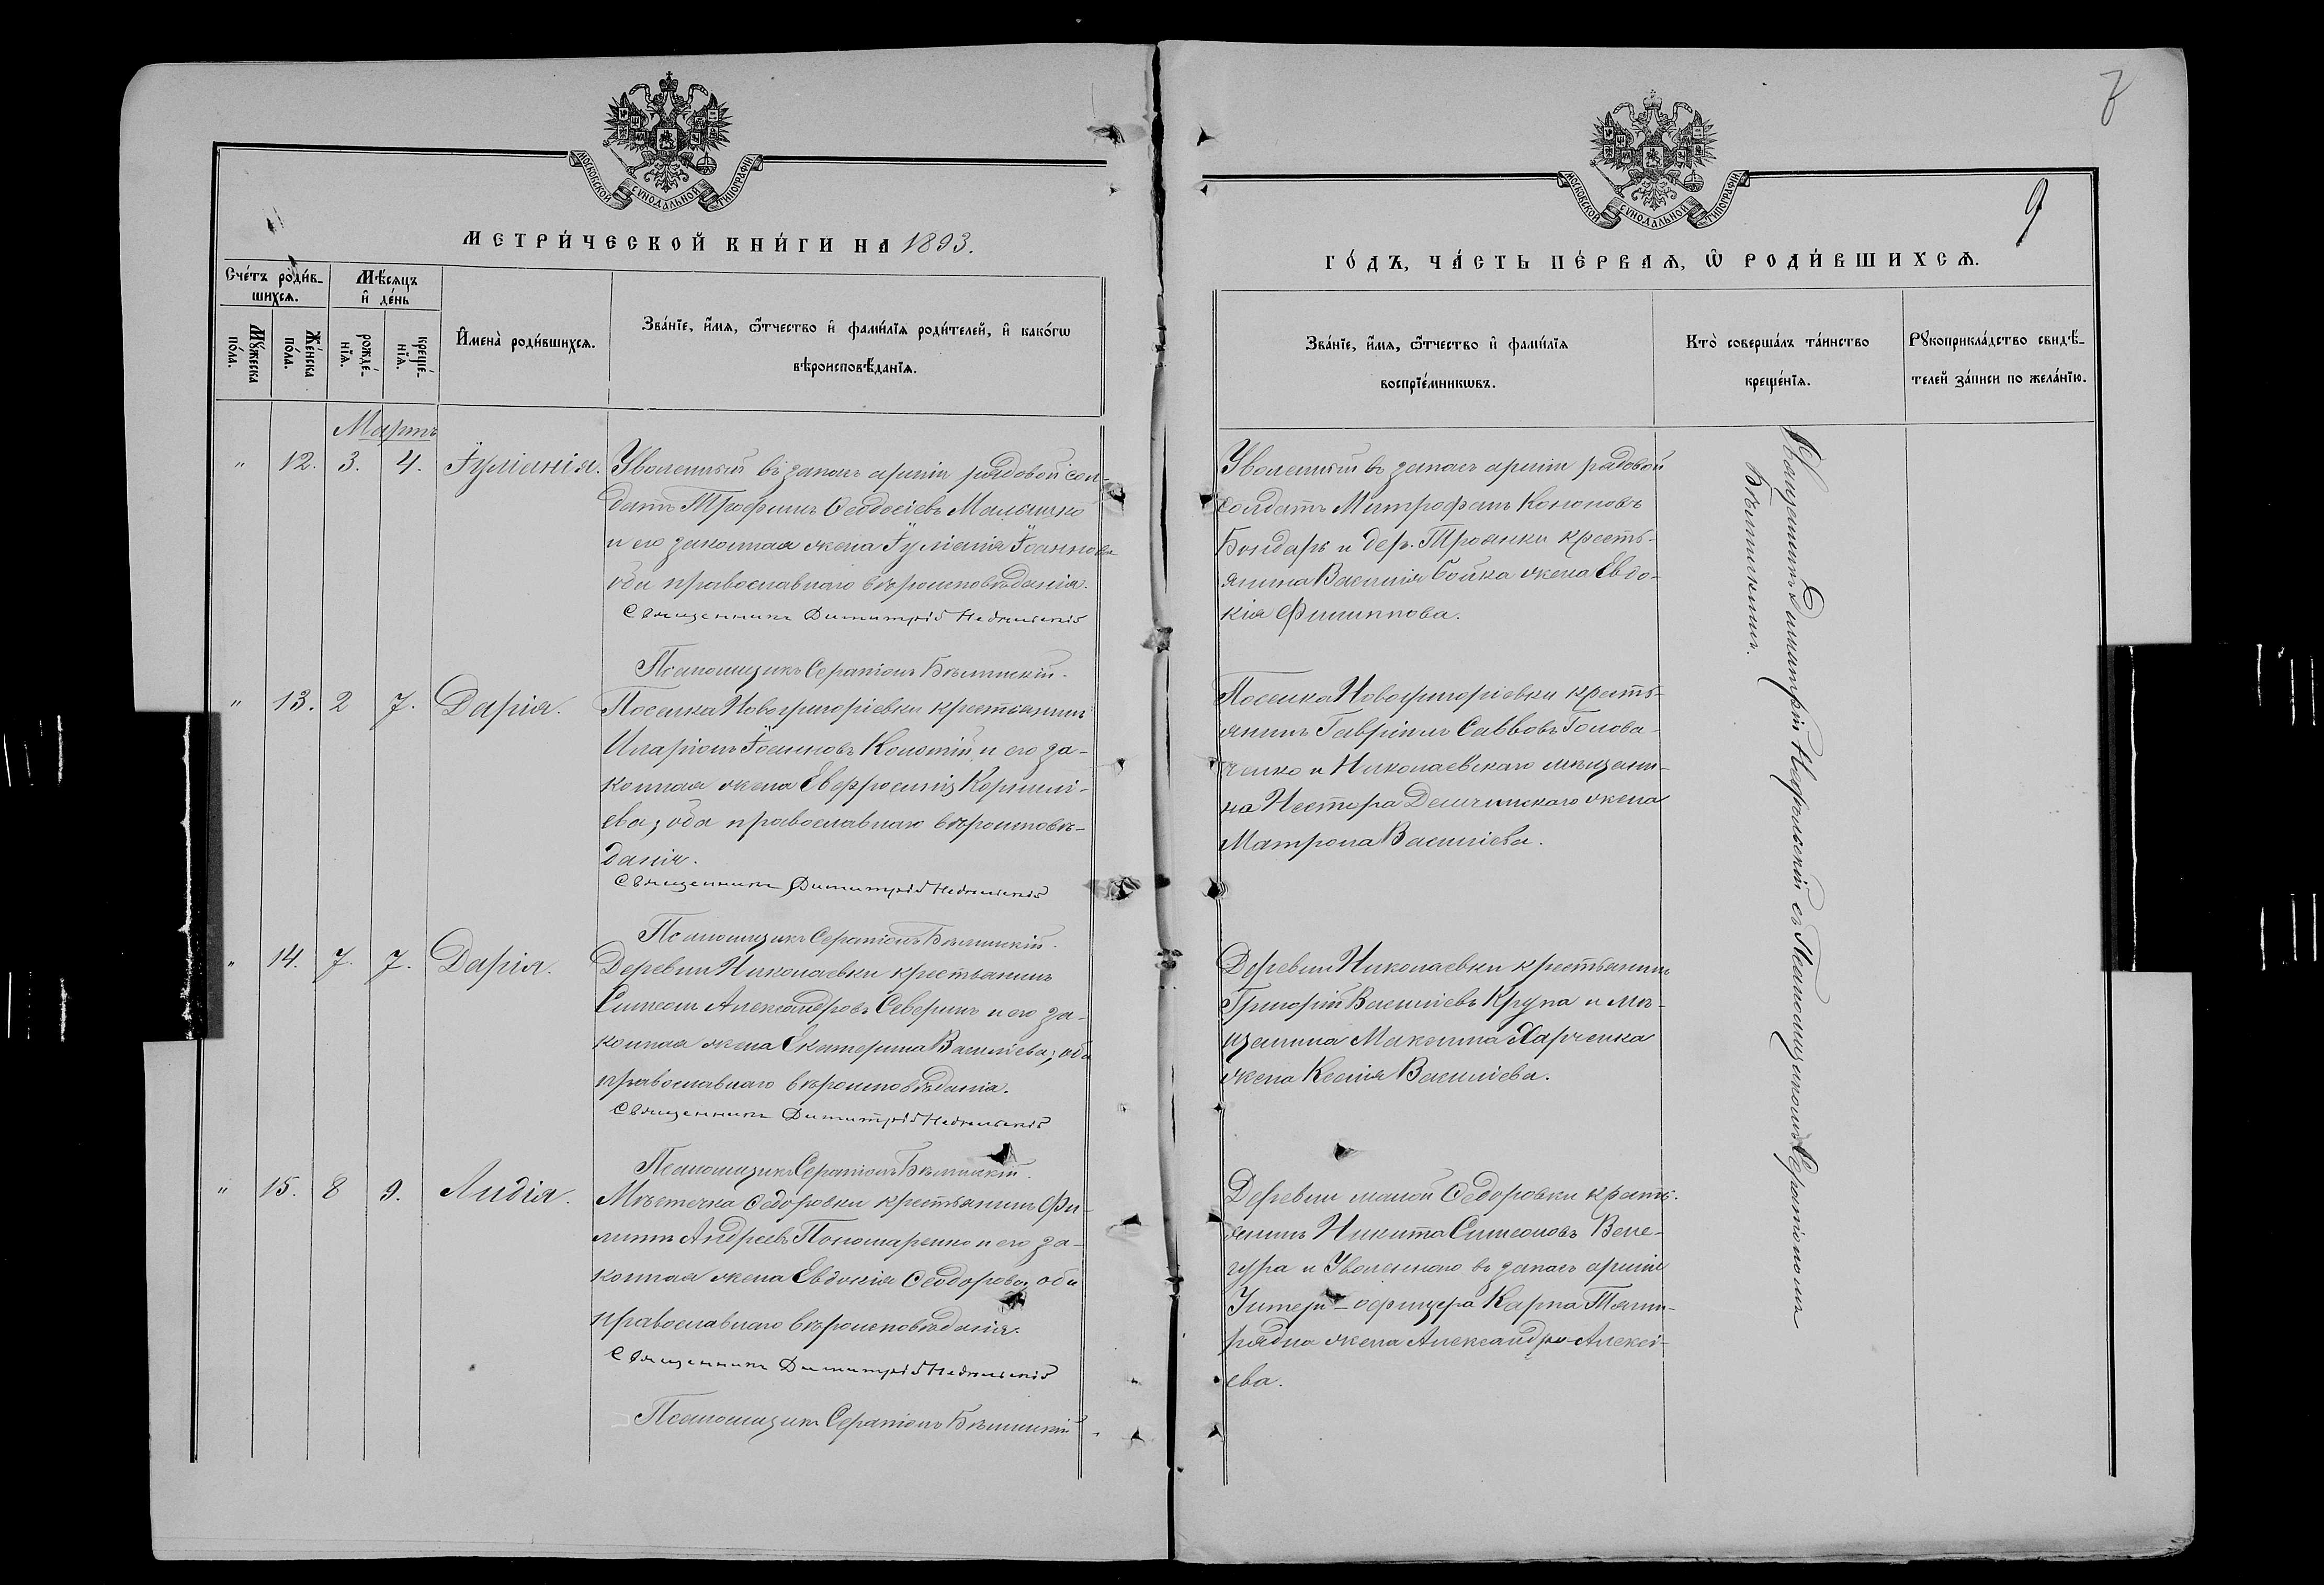 МОСКОВСКОЙ СѴНОДАЛЬНОЙ ТИПОГРАФІИ
МЕТРИ́ЧЕСКОЙ КНИ́ГИ НА 1893.
Сче́тъ роди́в-
шихсѧ.
Мѣ́сѧцъ
и҆ де́нь
Мꙋ́жеска
по́ла.
Же́нска
по́ла.
рожде́-
нїѧ.
креще́-
нїѧ.
И҆мена̀ роди́вшихсѧ.
Зва́нїе, и҆́мѧ, ѻ҆́тчество и҆ фами́лїѧ роди́телей, и҆ како́гѡ
вѣроисповѣ́данїѧ.
Мартъ
" 12. 3. 4. Іуліанія. Уволенный въ запасъ арміи рядовой сол-
датъ Трофимъ Ѳеодосіевъ Малышко
и его законная жена Іуліанія Іоаннова
оба православнаго вѣроисповѣданія.
Священникъ Димитрій Недѣльскій
Псаломщикъ Серапіонъ Бѣлинскій.
" 13. 2 7. Дарія. Поселка Новогригоріевки крестьянинъ
Иларіонъ Іоанновъ Колотій и его за-
конная жена Евфросинія Корнилі-
ева, оба православнаго вѣроисповѣ-
данія.
Священникъ Димитрій Недѣльскій
Псаломщикъ Серапіонъ Бѣлинскій.
" 14. 7. 7. Дарія. Деревни Николаевки крестьянинъ
Симеонъ Александровъ Северинъ и его за-
конная жена Екатерина Василіева, оба
православнаго вѣроисповѣданія.
Священникъ Димитрій Недѣльскій
Псаломщикъ Серапіонъ Бѣлинскій.
" 15. 8 9. Лидія. Мѣстечка Ѳедоровки крестьянинъ Фи-
липпъ Андреевъ Пономаренко и его за-
конная жена Евдокія Ѳеодорова, оба
православнаго вѣроисповѣданія.
Священникъ Димитрій Недѣльскій
Псаломщикъ Серапіонъ Бѣлинскій
9
МОСКОВСКОЙ СѴНОДАЛЬНОЙ ТИПОГРАФІИ
ГО́ДЪ, ЧА́СТЬ ПЕ́РВАѦ, Ѡ҆ РОДИ́ВШИХСѦ.
Зва́нїе, и҆́мѧ, ѻ҆́тчество и҆ фами́лїѧ
воспрїе́мникѡвъ.
Кто̀ соверша́лъ та́инство
креще́нїѧ.
Рꙋкоприкла́дство свидѣ́-
телей за́писи по жела́нїю.
Уволенный въ запасъ арміи рядовой
солдатъ Митрофанъ Кононовъ
Бондарь и дер. Троянки кресть-
янина Василія Бойка жена Евдо-
кія Филиппова.
Поселка Новогригоріевки кресть-
янинъ Гавріилъ Саввовъ Голова-
ченко и Николаевскаго мѣщани-
на Нестера жена
Матрона Василіева.
Деревни Николаевки крестьянинъ
Григорій Василіевъ Крупа и мѣ-
щанина Максима Харченка
жена Ксенія Василіева.
Деревни малой Ѳедоровки кресть-
янинъ Никита Симеоновъ Веле-
гура и Уволеннаго въ запасъ арміи
Унтеръ-офицера Карпа Тягни-
рядна жена Александра Алексі-
ева.
Священникъ Димитрій Недѣльскій съ Псаломщикомъ Серапіономъ
Бѣлинскимъ.